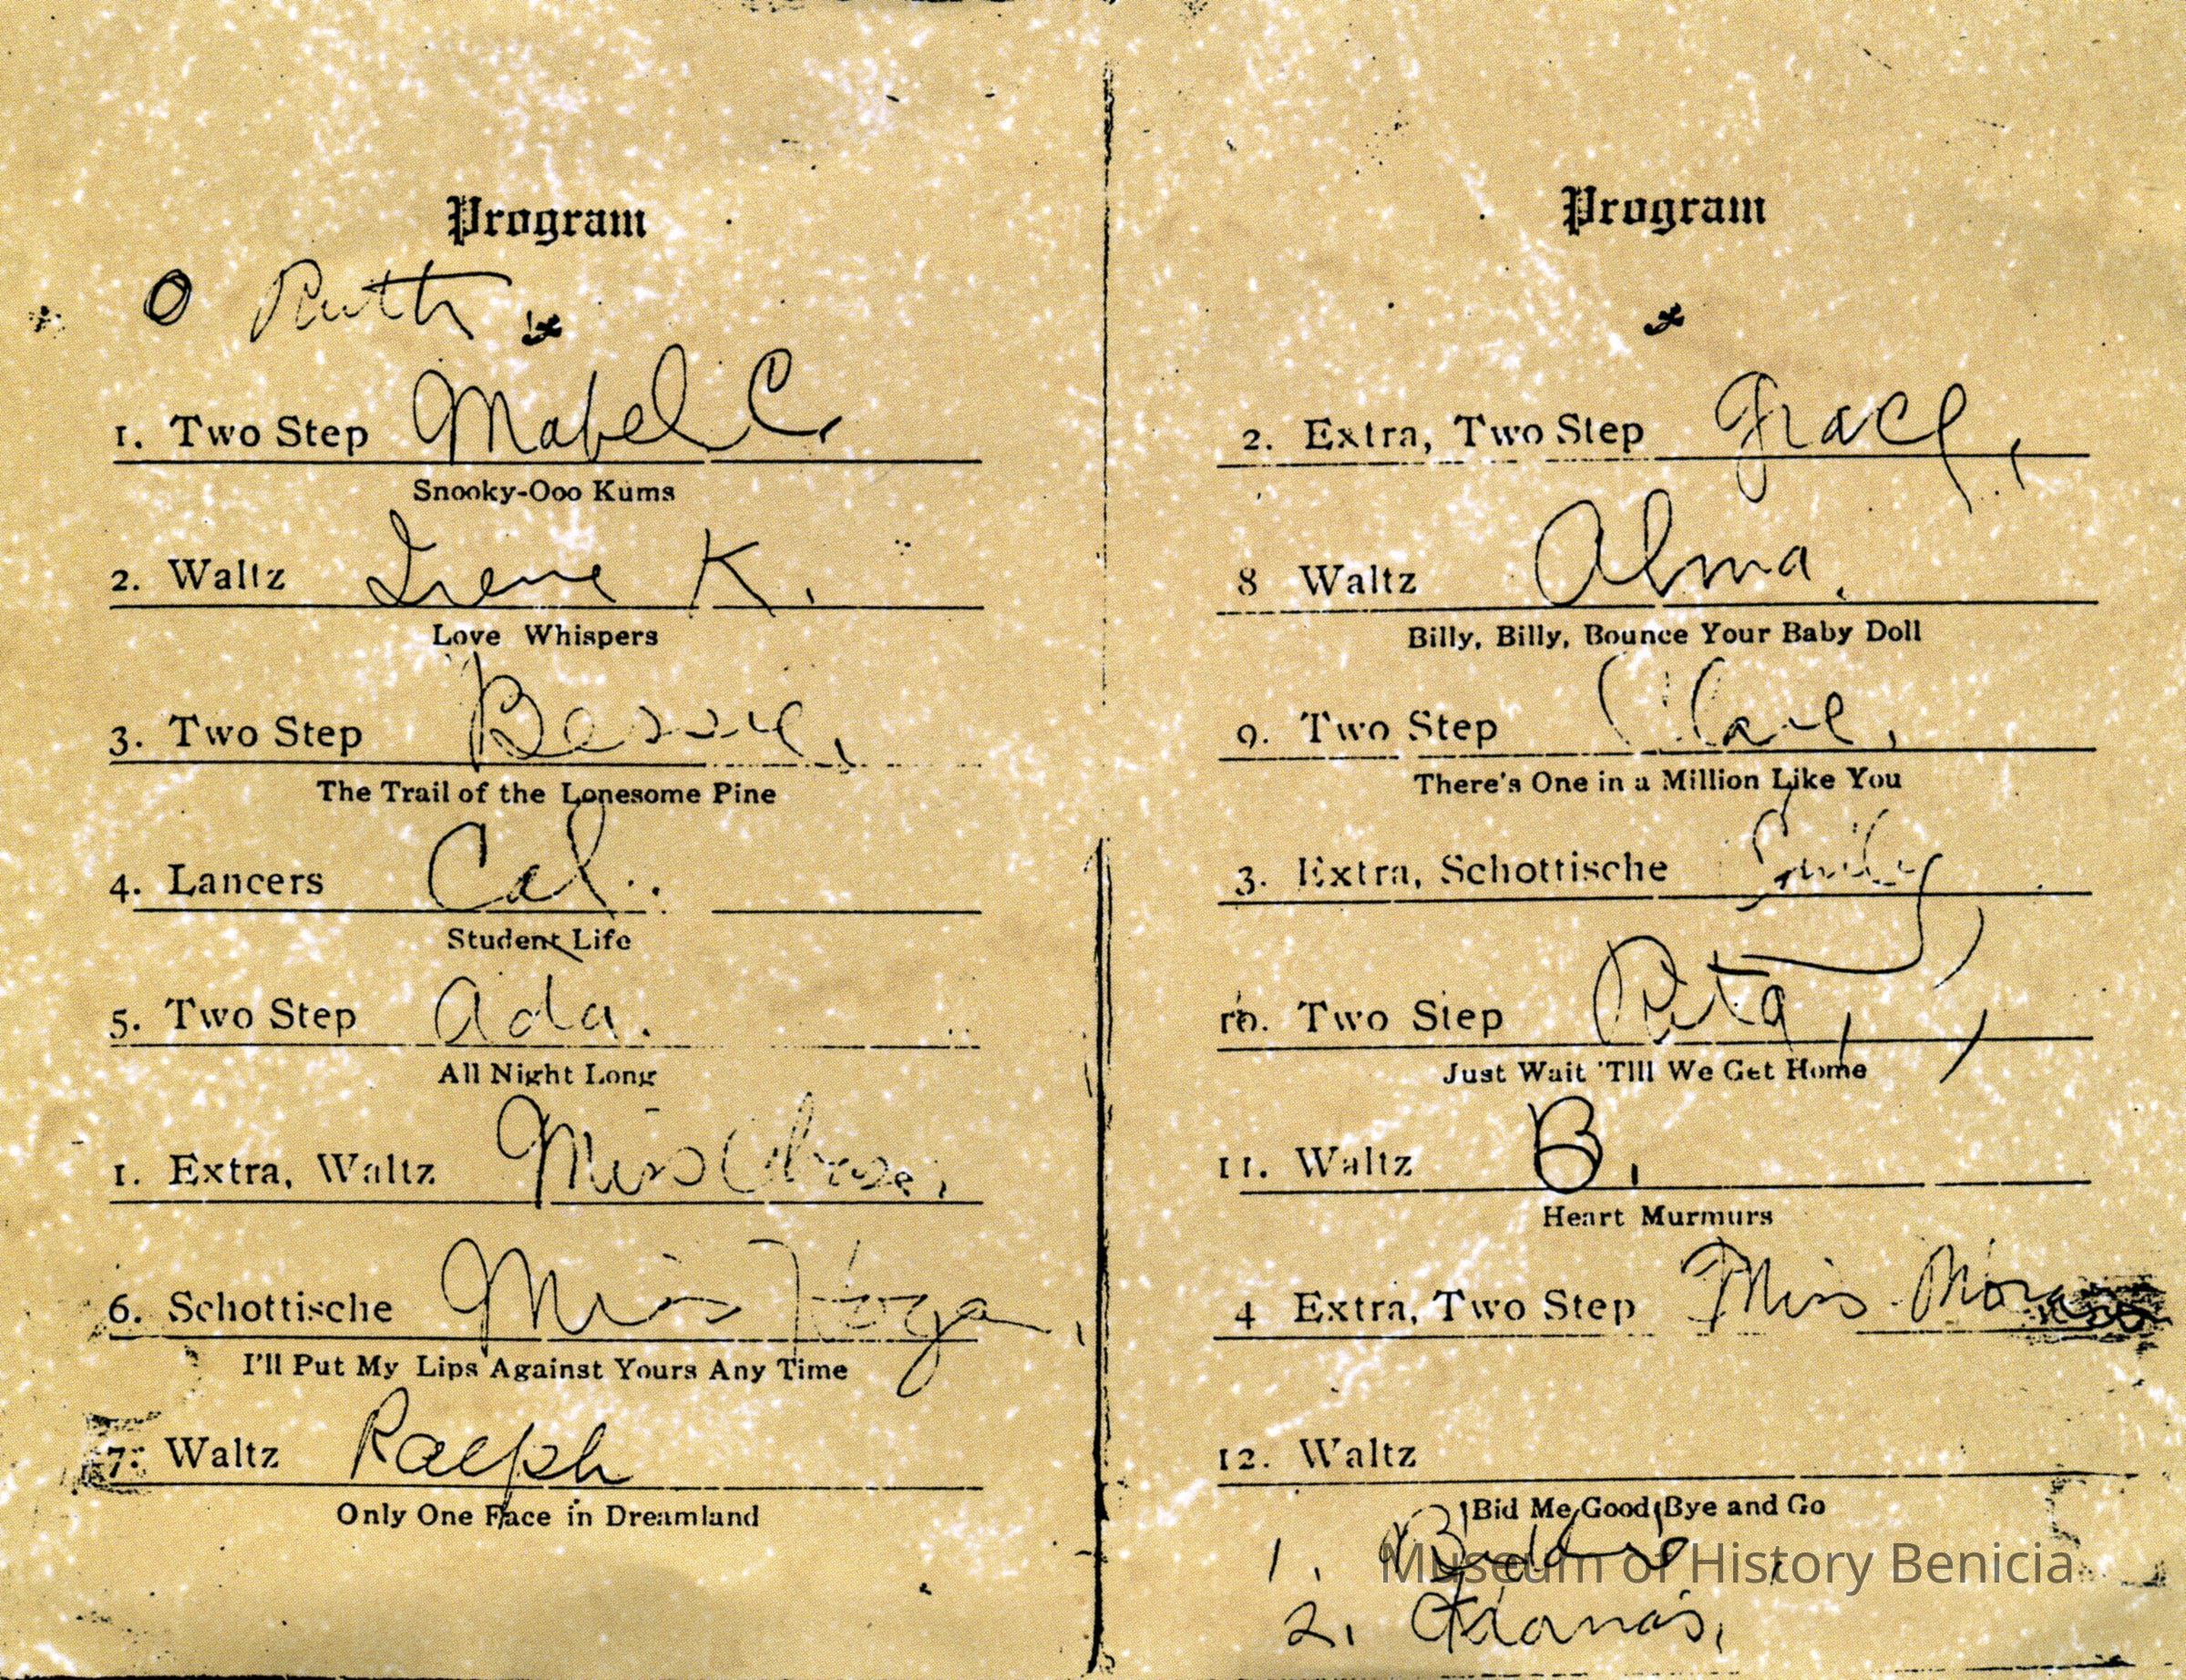 Program
0 Ruth
1. Two Step Mabel C.
Snooky-Ooo Kums
2. Waltz Irene K.
Love Whispers
3. Two Step Bessie,
The Trail of the Lonesome Pine
4. Lancers Cal.
Student Life
5. Two Step Ada.
All Night Long
1. Extra, Waltz Miss
6. Schottische Miss
I'll Put My Lips Against Yours Any Time
7. Waltz Ralph
Only One Face in Dreamland
Program
2. Extra, Two Step Grace,
8 Waltz Alma.
Billy, Billy, Bounce Your Baby Doll
9. Two Step
There's One in a Million Like You
3. Extra, Schottische Emily
10. Two Step Rita,
Just Wait 'Till We Get Home
11. Waltz B.
Heart Murmurs
4 Extra, Two Step Miss
12. Waltz
Bid Me Good Bye and Go
1.
2.
Museum of History Benicia